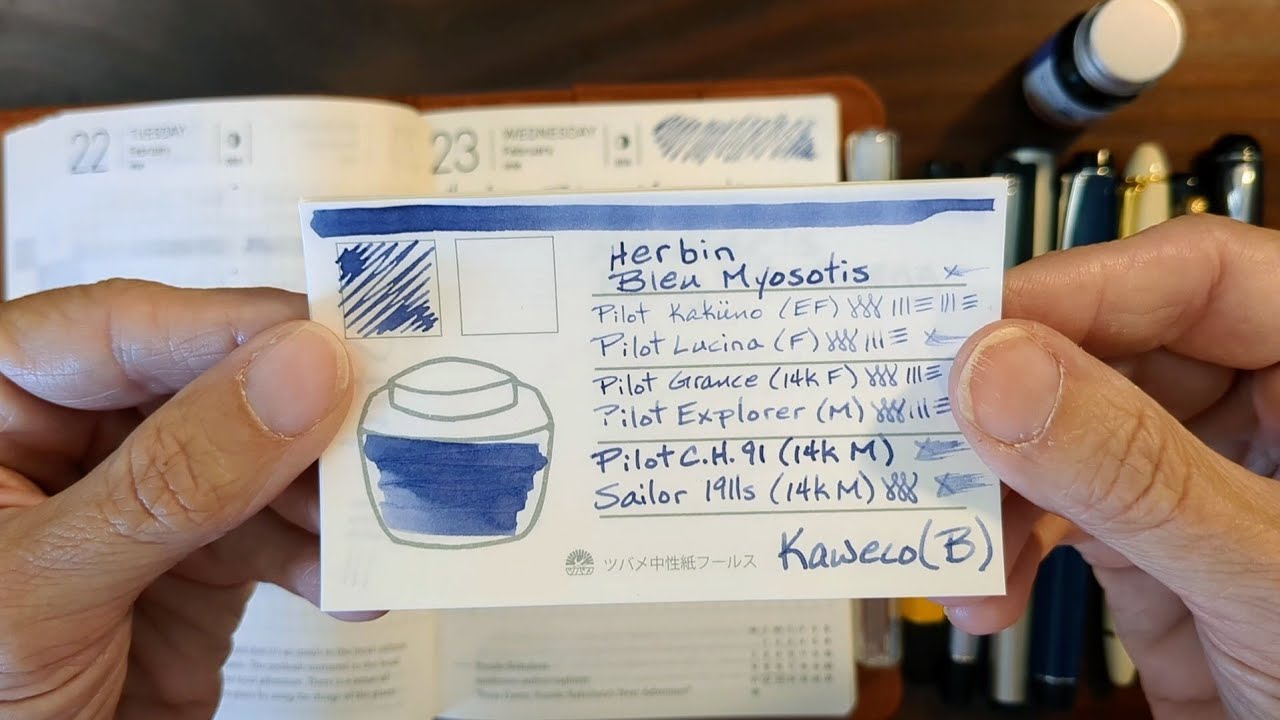 22 TUESDAY
February
23 WEDNESDAY
February
Herbin
Bleu Myosotis
Pilot Kaküno (EF)
Pilot Lucina (F)
Pilot Grance (14k F)
Pilot Explorer (M)
Pilot C.H. 91 (14k M)
Sailor 1911s (14k M)
Kaweco (B)
ツバメ中性紙フールス